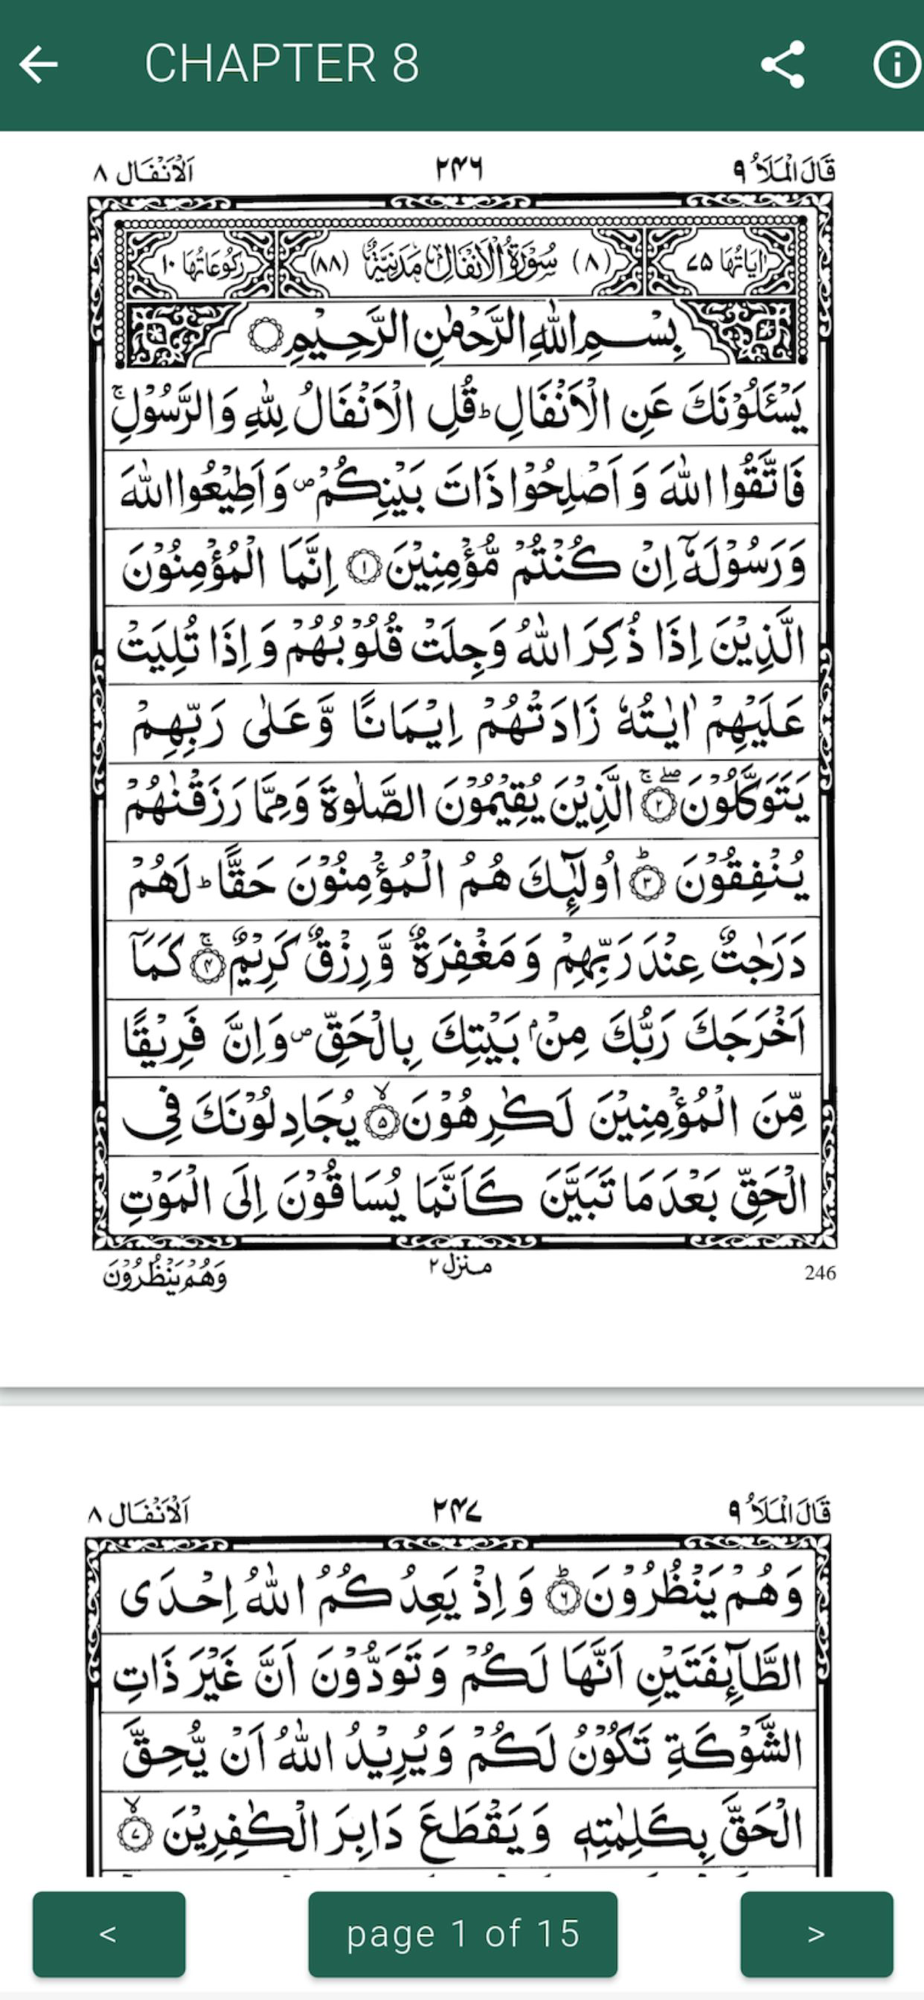 CHAPTER 8
قَالَ الْمَلَاُ ٩ ٢٤٦ اَلْاَنْفَال ٨
اٰيَاتُهَا ٧٥ (٨) سُوْرَةُ الْاَنْفَالِ مَدَنِيَّةٌ (٨٨) رُكُوْعَاتُهَا ١٠
بِسْمِ اللّٰهِ الرَّحْمٰنِ الرَّحِيْمِ
يَسْـَٔلُوْنَكَ عَنِ الْاَنْفَالِ ؕ قُلِ الْاَنْفَالُ لِلّٰهِ وَالرَّسُوْلِ ۚ
فَاتَّقُوا اللّٰهَ وَاَصْلِحُوْا ذَاتَ بَيْنِكُمْ ۪ وَاَطِيْعُوا اللّٰهَ
وَرَسُوْلَهٗۤ اِنْ كُنْتُمْ مُّؤْمِنِيْنَ ١ اِنَّمَا الْمُؤْمِنُوْنَ
الَّذِيْنَ اِذَا ذُكِرَ اللّٰهُ وَجِلَتْ قُلُوْبُهُمْ وَاِذَا تُلِيَتْ
عَلَيْهِمْ اٰيٰتُهٗ زَادَتْهُمْ اِيْمَانًا وَّعَلٰى رَبِّهِمْ
يَتَوَكَّلُوْنَ ٢ الَّذِيْنَ يُقِيْمُوْنَ الصَّلٰوةَ وَمِمَّا رَزَقْنٰهُمْ
يُنْفِقُوْنَ ٣ اُولٰٓئِكَ هُمُ الْمُؤْمِنُوْنَ حَقًّا ؕ لَهُمْ
دَرَجٰتٌ عِنْدَ رَبِّهِمْ وَمَغْفِرَةٌ وَّرِزْقٌ كَرِيْمٌ ٤ كَمَاۤ
اَخْرَجَكَ رَبُّكَ مِنْۢ بَيْتِكَ بِالْحَقِّ ۪ وَاِنَّ فَرِيْقًا
مِّنَ الْمُؤْمِنِيْنَ لَكٰرِهُوْنَ ٥ يُجَادِلُوْنَكَ فِى
الْحَقِّ بَعْدَ مَا تَبَيَّنَ كَاَنَّمَا يُسَاقُوْنَ اِلَى الْمَوْتِ
246 منزل ٢ وَهُمْ يَنْظُرُوْنَ
قَالَ الْمَلَاُ ٩ ٢٤٧ اَلْاَنْفَال ٨
وَهُمْ يَنْظُرُوْنَ ٦ وَاِذْ يَعِدُكُمُ اللّٰهُ اِحْدَى
الطَّآئِفَتَيْنِ اَنَّهَا لَكُمْ وَتَوَدُّوْنَ اَنَّ غَيْرَ ذَاتِ
الشَّوْكَةِ تَكُوْنُ لَكُمْ وَيُرِيْدُ اللّٰهُ اَنْ يُّحِقَّ
الْحَقَّ بِكَلِمٰتِهٖ وَيَقْطَعَ دَابِرَ الْكٰفِرِيْنَ ٧
< page 1 of 15 >